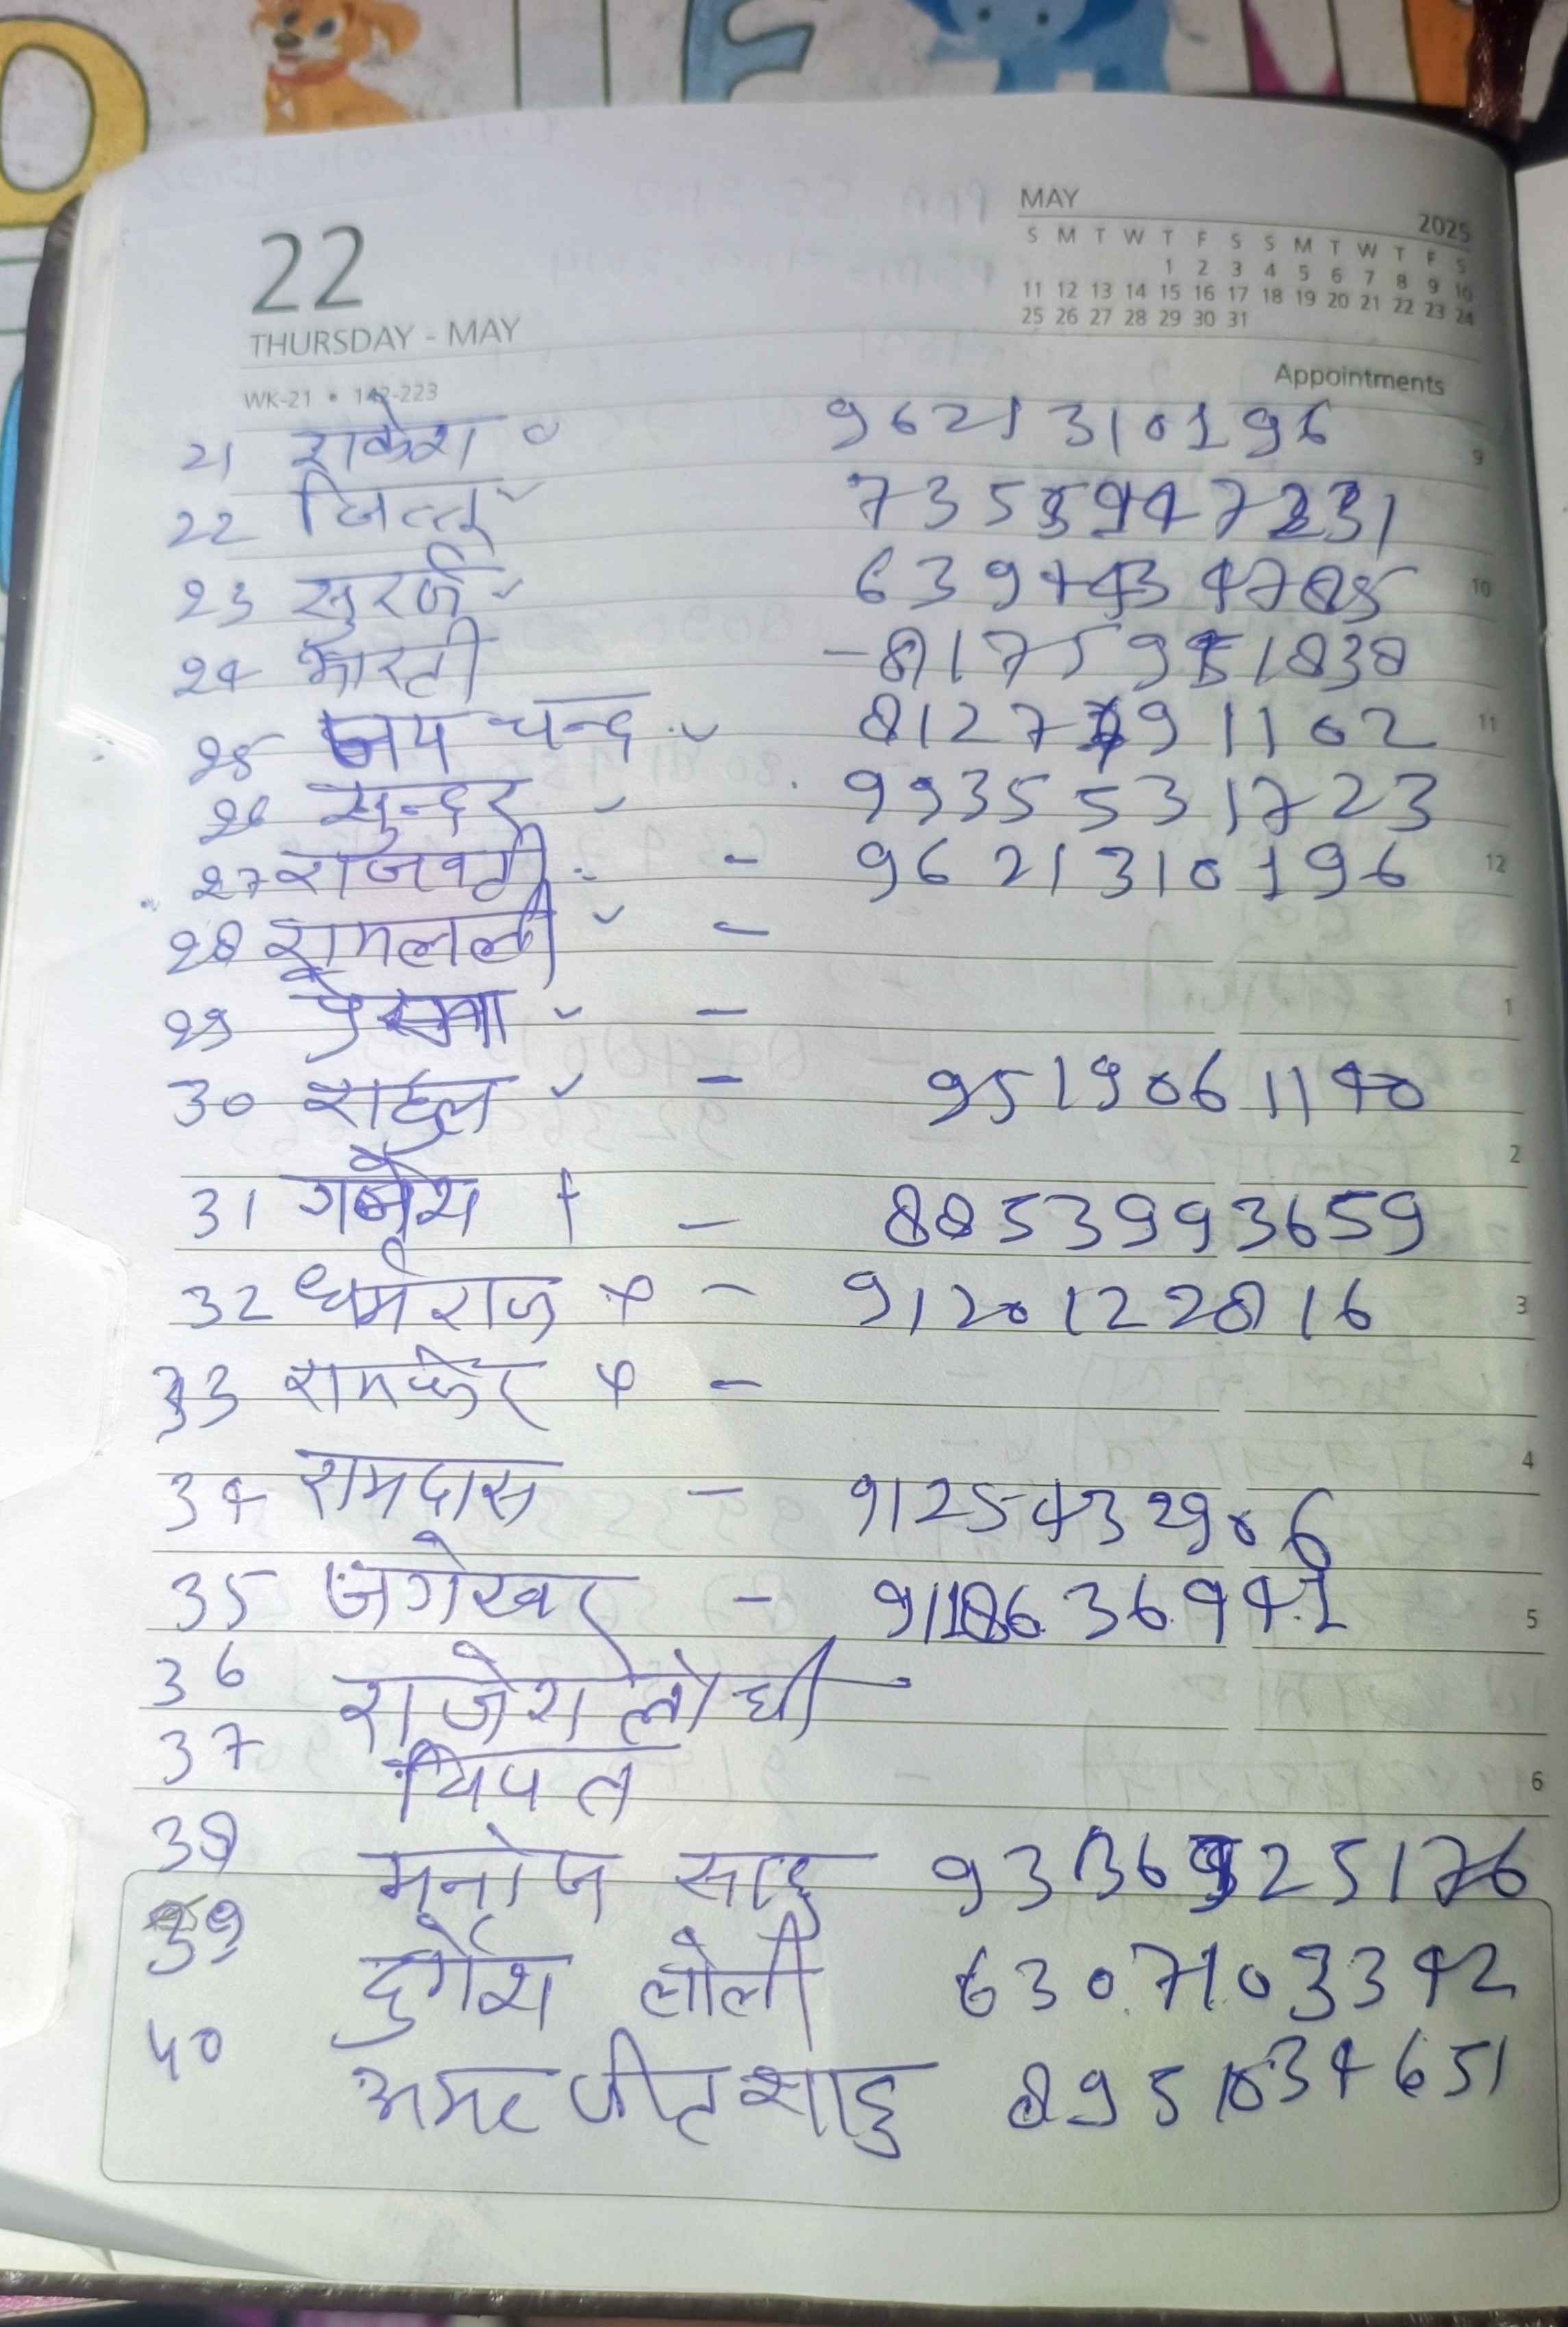 MAY 2025
S M T W T F S S M T W T F S
1 2 3 4 5 6 7 8 9 10
11 12 13 14 15 16 17 18 19 20 21 22 23 24
25 26 27 28 29 30 31
22
THURSDAY - MAY
Appointments
WK-21 • 142-223
21 राकेश 9621310196
9
22 जित्तू 7355947231
23 सुरज
10
24 - 8175951838
25 जय चन्द 8127791102
11
26 सुन्दर 9935531723
27 - 9621310196
12
28 रामलली -
29 -
1
30 राहुल - 9519061140
2
31 गनेश - 8853993659
32 धर्मराज - 9120122816
3
33 रामफेर -
4
34 रामदास - 9125432906
35 - 9118636941
5
36 राजेश लोधी
37
6
38 मनोज साहु 9336925176
39 दुर्गेश 6307103342
40 अमरजीत साहु 8951034651